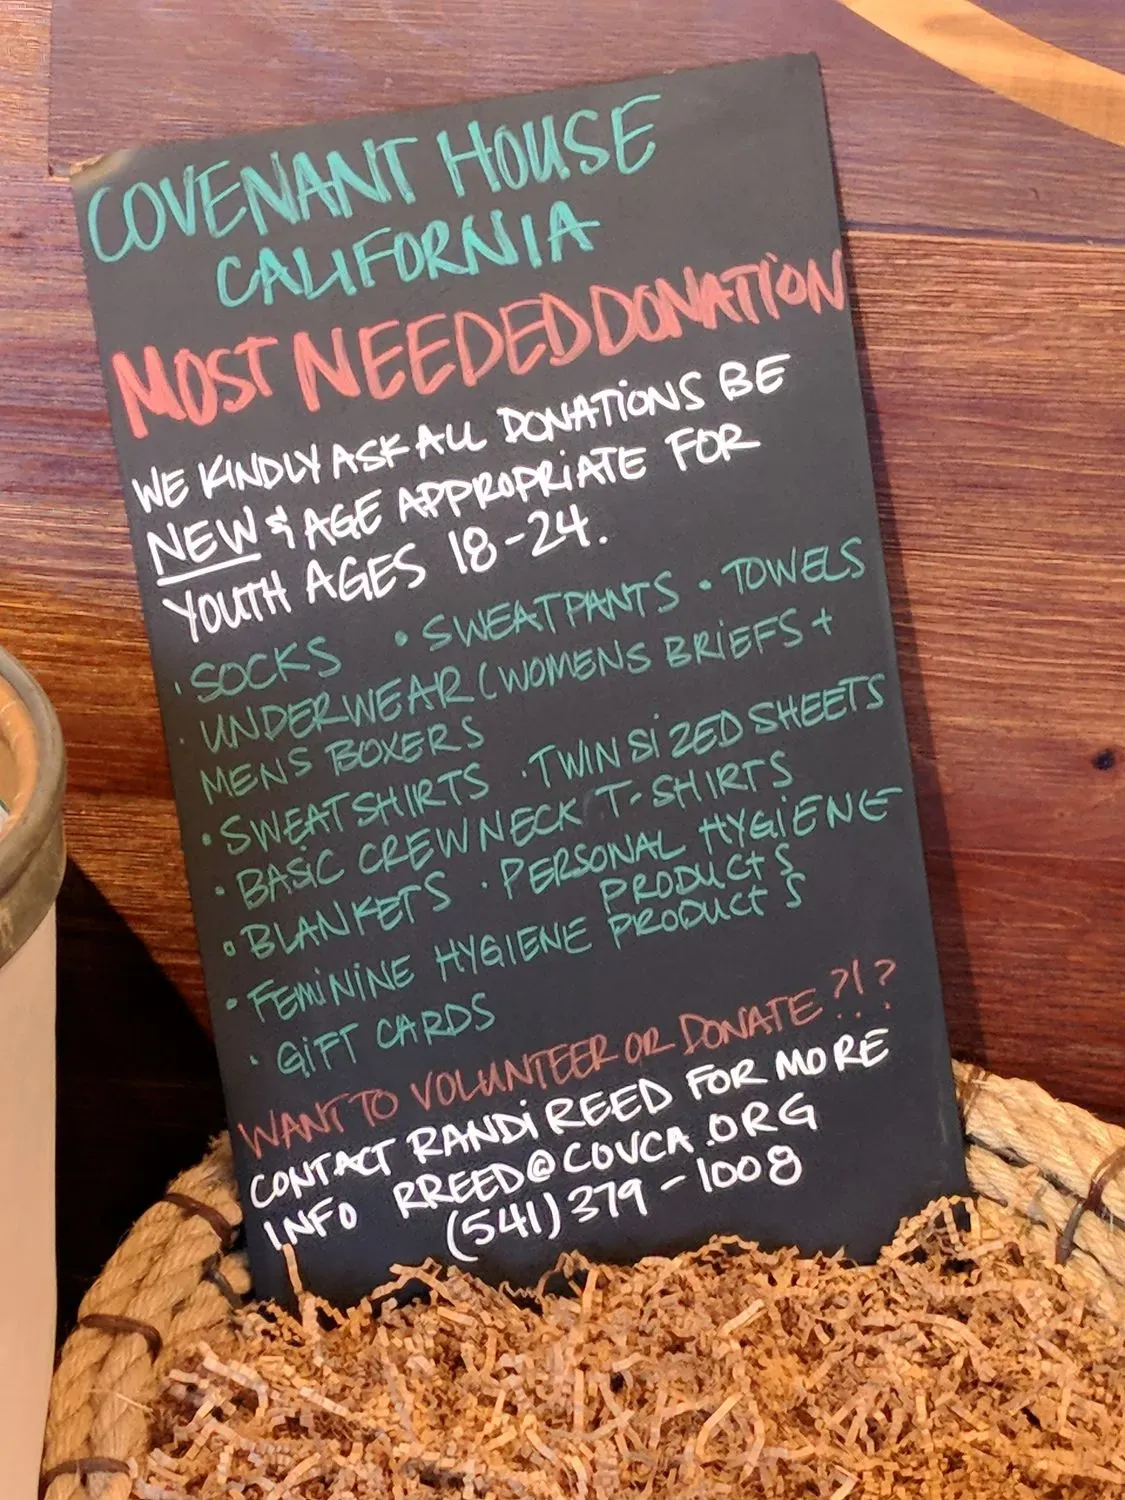 COVENANT HOUSE
CALIFORNIA
MOST NEEDED DONATION
WE KINDLY ASK ALL DONATIONS BE
NEW & AGE APPROPRIATE FOR
YOUTH AGES 18-24.
· SOCKS · SWEATPANTS · TOWELS
· UNDERWEAR (WOMENS BRIEFS +
MENS BOXERS
· SWEATSHIRTS · TWIN SIZED SHEETS
· BASIC CREWNECK T-SHIRTS
· BLANKETS · PERSONAL HYGIENE
PRODUCTS
· FEMININE HYGIENE PRODUCTS
· GIFT CARDS
WANT TO VOLUNTEER OR DONATE?!?
CONTACT RANDI REED FOR MORE
INFO RREED@COVCA.ORG
(541) 379-1008